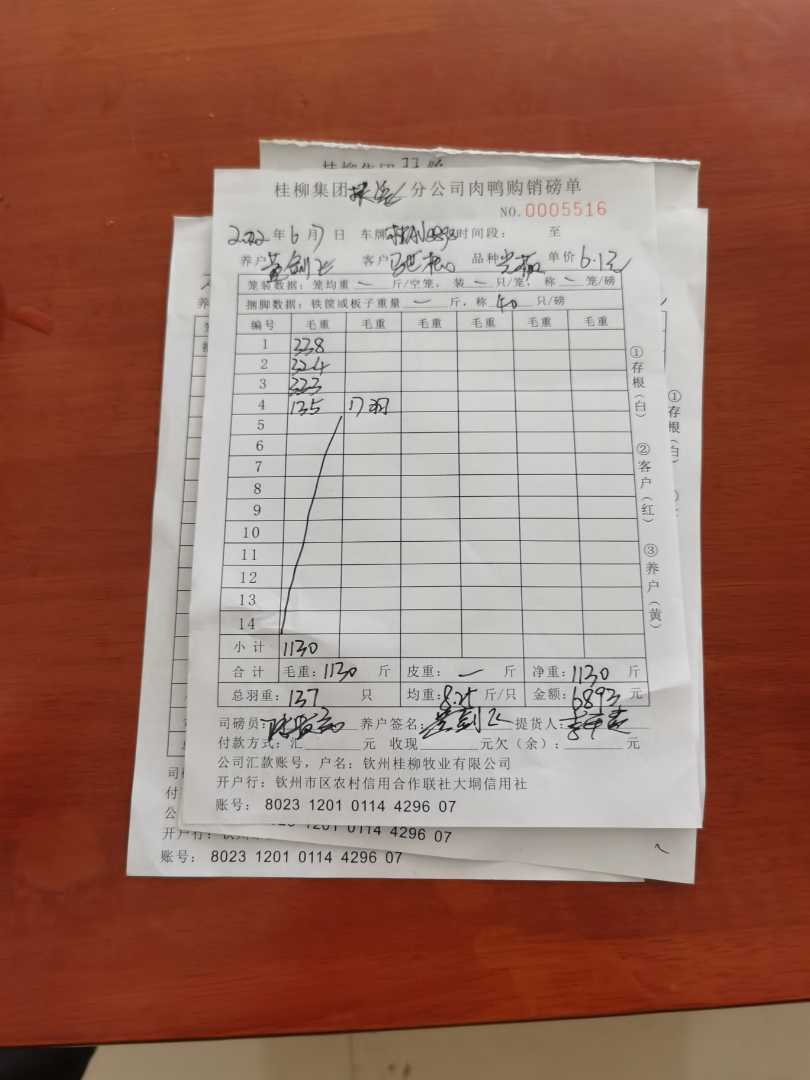 桂柳集团 分公司肉鸭购销磅单
NO.0005516
2022年6月7日 车牌 时间段: 至
养户 客户 品种 单价6.1元
笼装数据:笼均重一斤/空笼,装一只/笼,称一笼/磅
捆脚数据:铁筐或板子重量一斤,称40只/磅
编号 毛重 毛重 毛重 毛重 毛重 毛重
1 338
2 324
3 333
4 135 17羽
5
6
7
8
9
10
11
12
13
14
小计 1130
合计 毛重:1130斤 皮重:一斤 净重:1130斤
总羽重:137只 均重:8.25斤/只 金额:6893元
司磅员: 养户签名: 提货人:
付款方式:汇 元 收现 元欠(余): 元
公司汇款账号,户名:钦州桂柳牧业有限公司
开户行:钦州市区农村信用合作联社大垌信用社
账号:8023 1201 0114 4296 07
①存根(白)
②客户(红)
③养户(黄)
①存根(白)
开户行:
1201 0114 4296 07
账号:8023 1201 0114 4296 07